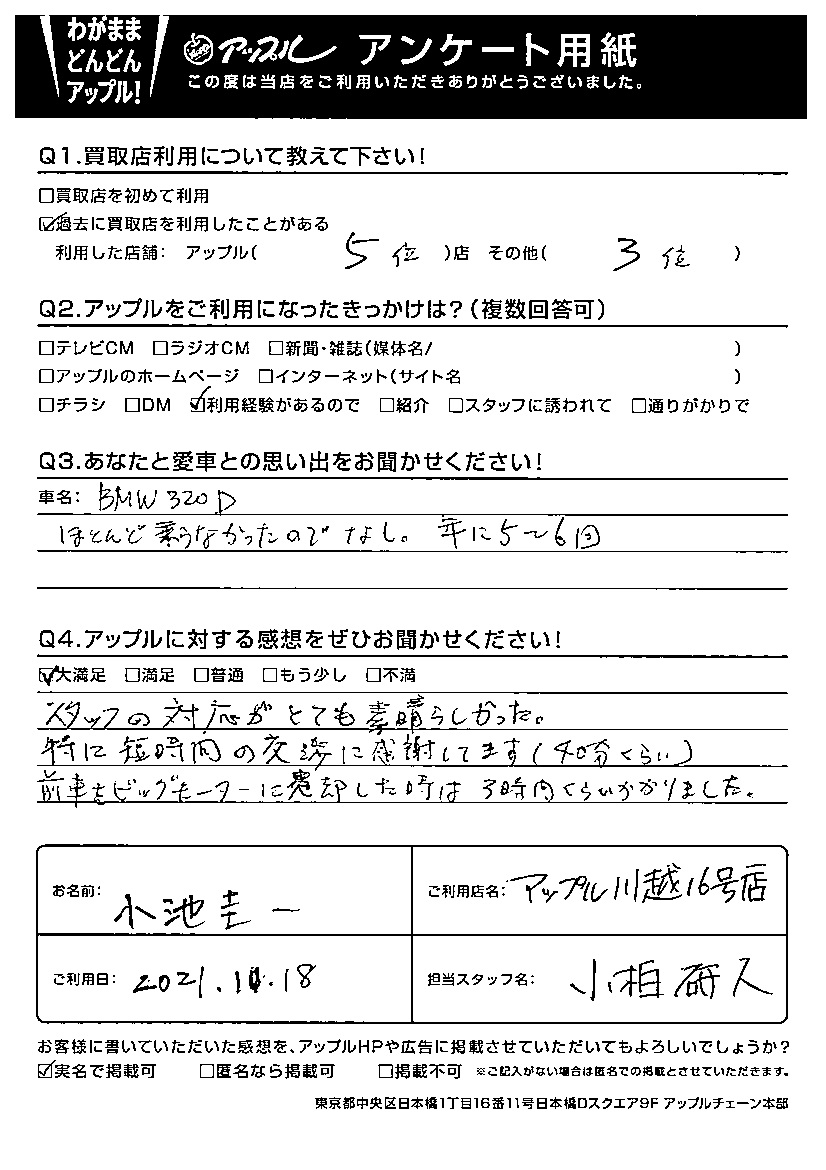 わがまま
どんどん
アップル!
アップル アンケート用紙
この度は当店をご利用いただきありがとうございました。
Q1.買取店利用について教えて下さい!
□買取店を初めて利用
☑過去に買取店を利用したことがある
利用した店舗: アップル( 5位 )店 その他( 3位 )
Q2.アップルをご利用になったきっかけは?(複数回答可)
□テレビCM □ラジオCM □新聞・雑誌(媒体名/ )
□アップルのホームページ □インターネット(サイト名 )
□チラシ □DM ☑利用経験があるので □紹介 □スタッフに誘われて □通りがかりで
Q3.あなたと愛車との思い出をお聞かせください!
車名: BMW 320D
ほとんど乗らなかったのでなし。 年に5~6回
Q4.アップルに対する感想をぜひお聞かせください!
☑大満足 □満足 □普通 □もう少し □不満
スタッフの対応がとても素晴らしかった。
特に短時間の交渉に感謝してます(40分くらい)
前車をビッグモーターに売却した時は3時間くらいかかりました。
お名前: 小池圭一
ご利用店名: アップル川越16号店
ご利用日: 2021.10.18
担当スタッフ名: 小柏研人
お客様に書いていただいた感想を、アップルHPや広告に掲載させていただいてもよろしいでしょうか?
☑実名で掲載可 □匿名なら掲載可 □掲載不可 ※ご記入がない場合は匿名での掲載とさせていただきます。
東京都中央区日本橋1丁目16番11号日本橋Dスクエア9F アップルチェーン本部